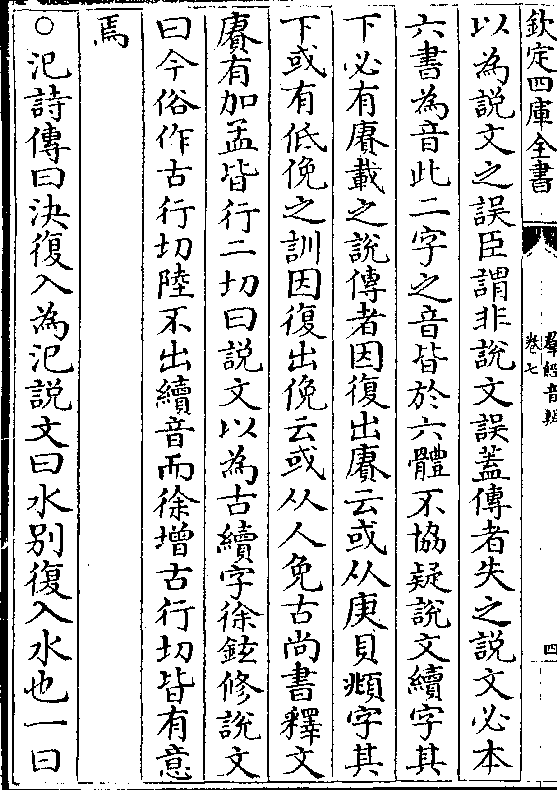 欽定四庫全書
羣經音辨
卷七
四
以為說文之誤臣謂非說文誤蓋傳者失之說文必本
六書為音此二字之音皆於六體不協疑說文續字其
下必有賡載之說傳者因復出賡云或从庚貝頫字其
下或有低俛之訓因復出俛云或从人免古尚書釋文
賡有加孟皆行二切曰說文以為古續字徐鉉修說文
曰今俗作古行切陸不出續音而徐增古行切皆有意
焉
○汜詩傳曰決復入為汜說文曰水别復入水也一曰